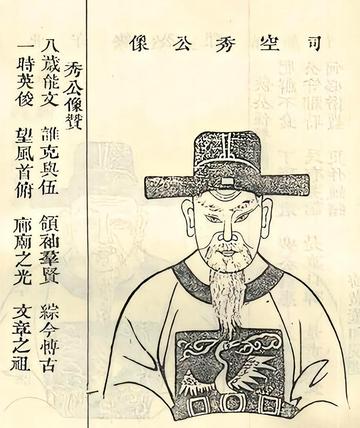 司空秀公像
秀公像贊
八歲能文 誰克與伍 領袖羣賢 綜今愽古
一時英俊 望風首俯 廊廟之光 文章之祖